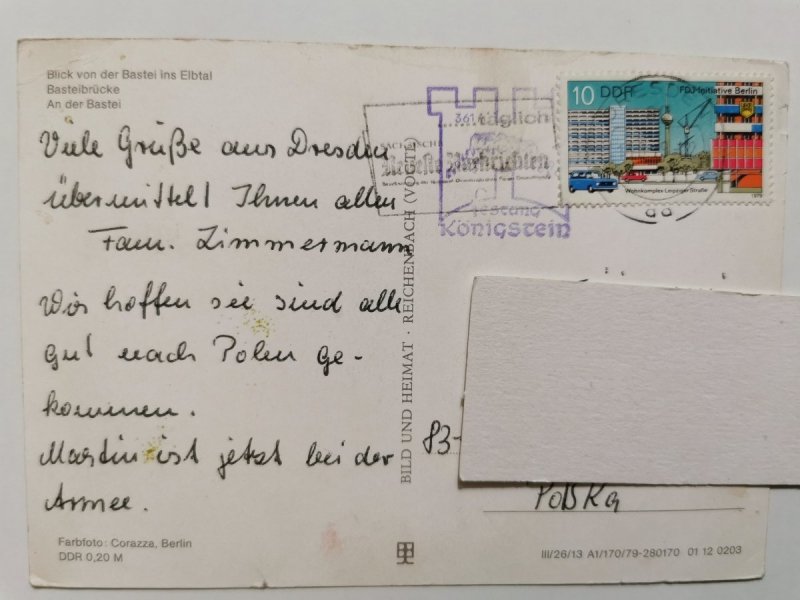 Blick von der Bastei ins Elbtal
Basteibrücke
An der Bastei
Viele Grüße aus Dresden
übermittelt Ihnen allen
Fam. Zimmermann
Wir hoffen sie sind alle
gut nach Polen ge-
kommen.
Martin ist jetzt bei der
Armee.
Farbfoto: Corazza, Berlin
DDR 0,20 M
BILD UND HEIMAT · REICHENBACH (VOGTL)
täglich
SÄCHSISCHE
Neueste Nachrichten
Festung
Königstein
10 DDR FDJ-Initiative Berlin
Wohnkomplex Leipziger Straße
83-
Polska
III/26/13 A1/170/79-280170 01 12 0203